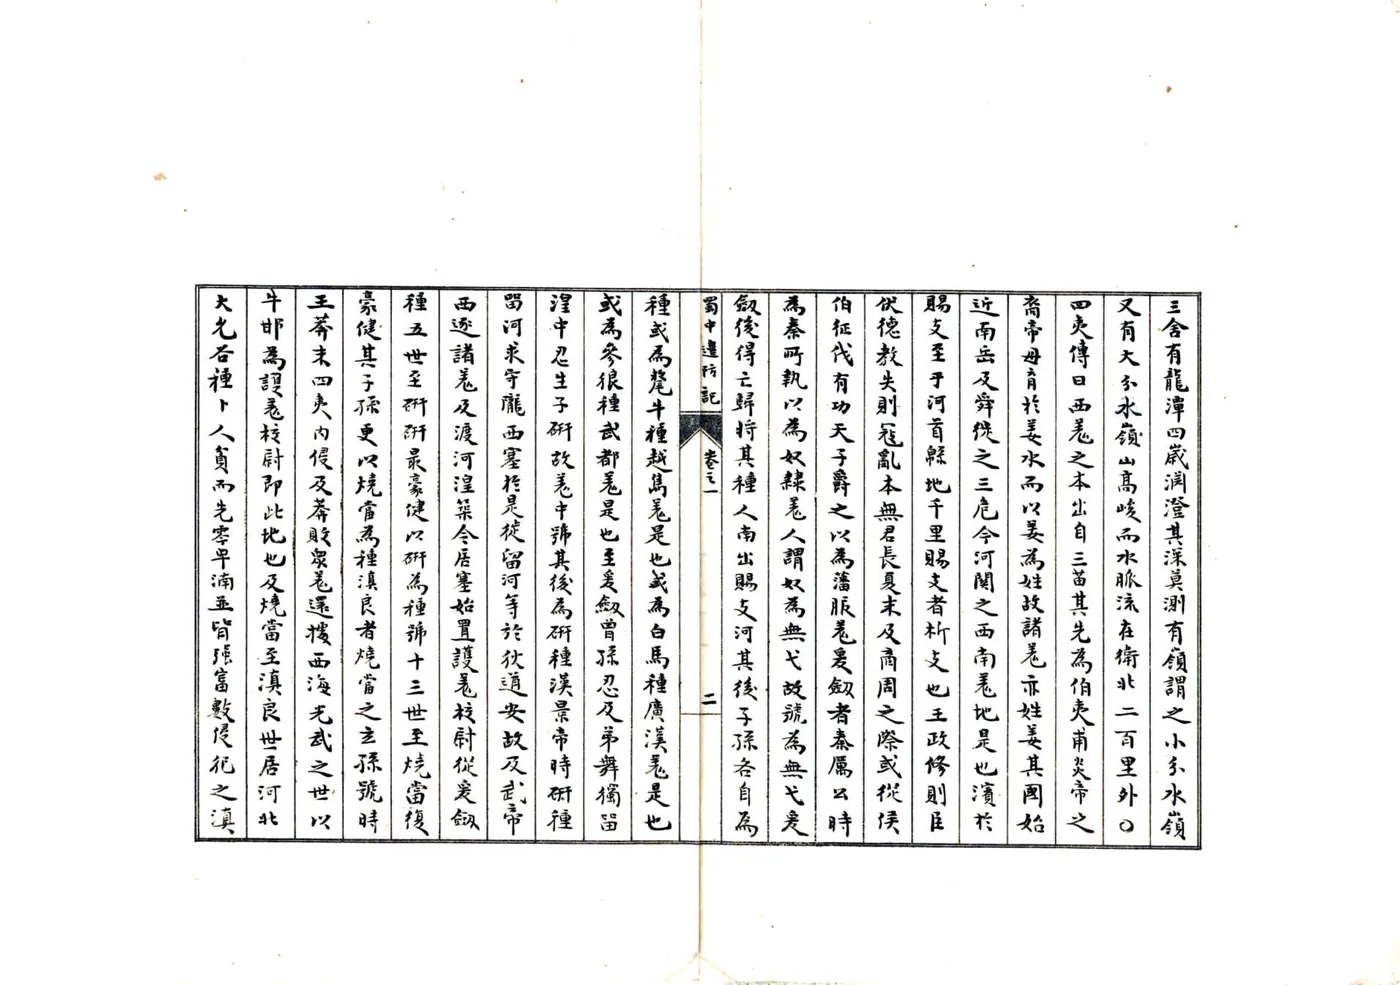 三舍有龍潭四歲淵澄其深莫測有嶺謂之小分水嶺
又有大分水嶺山高峻而水脈流在衛北二百里外〇
四夷傳曰西羗之本出自三苗其先為伯夷甫炎帝之
裔帝母育於姜水而以姜為姓故諸羗亦姓姜其國始
近南岳及舜徙之三危今河関之西南羗地是也濱於
賜支至乎河首緜地千里賜支者析支也王政修則臣
伏德教失則冦亂本無君長夏末及商周之際或從侯
伯征伐有功天子爵之以為藩服羗爰劔者秦厲公時
為秦所執以為奴隸羗人謂奴為無弋故號為無弋爰
劔後得亡歸将其種人南出賜支河其後子孫各自為
蜀中邊防記 卷之一 二
種或為氂牛種越嶲羗是也或為白馬種廣漢羗是也
或為參狼種武都羗是也至爰劔曽孫忍及弟舞獨留
湟中忍生子研故羗中號其後為研種漢景帝時研種
留河求守隴西塞於是徙留河等於狄道安故及武帝
西逐諸羗及渡河湟築令居塞始置護羗校尉從爰劔
種五世至研研最豪健以研為種號十三世至焼當復
豪健其子孫更以焼當為種滇良者焼當之玄孫號時
王莽末四夷内侵及莽敗眾羗還㩀西海光武之世以
牛邯為護羗校尉即此地也及燒當至滇良世居河北
大允谷種卜人貧而先零卑湳並皆强富數侵犯之滇